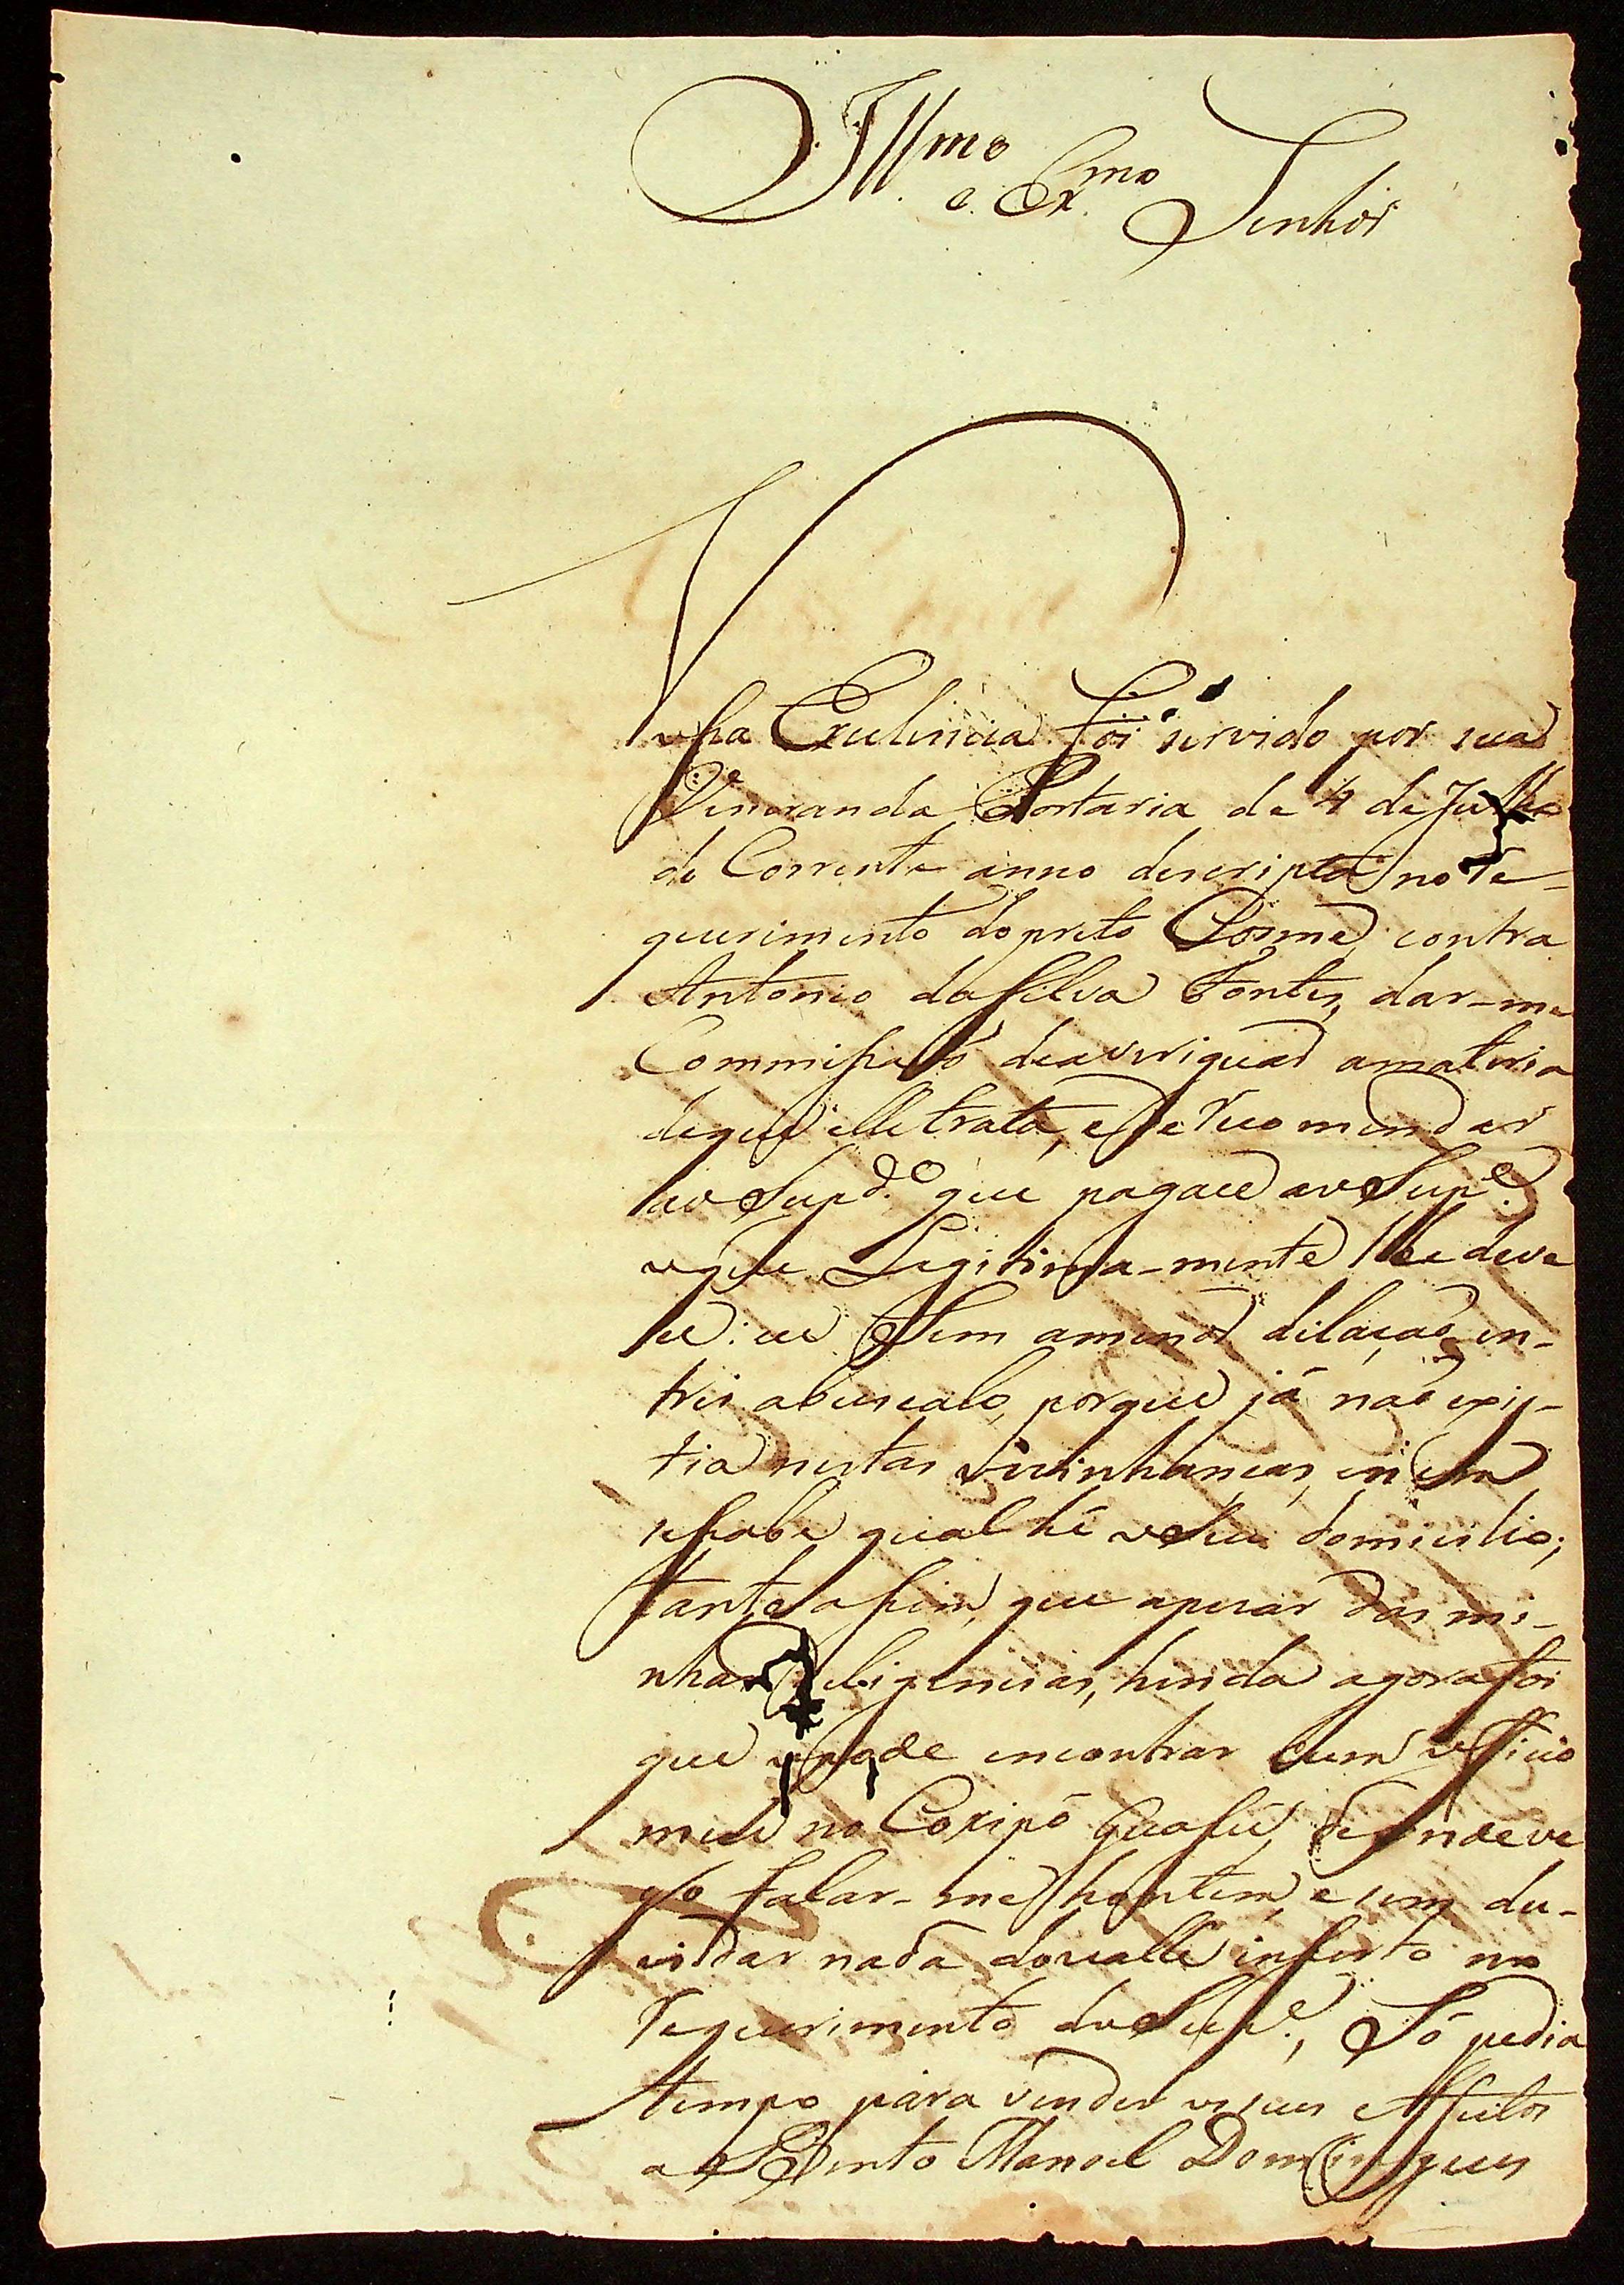 Illmo. e Exmo. Senhor
Vossa Excelencia foi servido por sua
Veneranda Portaria de 4 de Julho
do Corrente anno descripta no re-
querimento do preto Cosme contra
Antonio da Silva Fontes, dar-me
Commissaõ de averiguar amateria
deque elle trata, e de recomendar
ao Supdo. que pagace ao Supe.
oque Legitima-mente lhe deve
Sem amenor dilaçaõ en-
trei abuscalo, porque já naõ exis-
tia nestas vizinhanças, enem
sesabe qual hé oseu domicilio;
tanto assim, que apezar das mi-
nhas deligencias, hinda agora foi
que opode encontrar hum officio
meu no Coxipó Guasú, deonde ve
yo falar-me hontem, e sem du-
vidar nada do inserto no
requerimento do Supe., Só pedia
tempo para vender os seus effeitos
a Bento Manoel Domingues